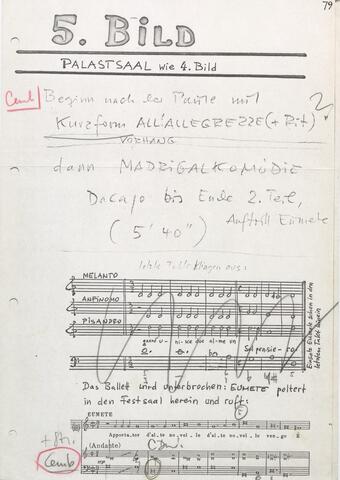 79
5. BILD
PALASTSAAL wie 4. Bild
Cemb
Beginn nach der Pause mit
Kurzform ALL'ALLEGREZZE (+ Rit)
VORHANG
dann MADRIGALKOMÖDIE
Dacapo bis Ende 2. Teil,
(5' 40") Auftritt Eumete
letzte Takte
MELANTO
ANFINOMO
PISANDRO
Eumete schon in den letzten Takt hinein
Das Ballet wird unterbrochen: EUMETE poltert
in den Festsaal herein und ruft:
EUMETE
Apportator d'alte novelle d'alte novelle vengo
+ Str.
(Andante)
Cemb